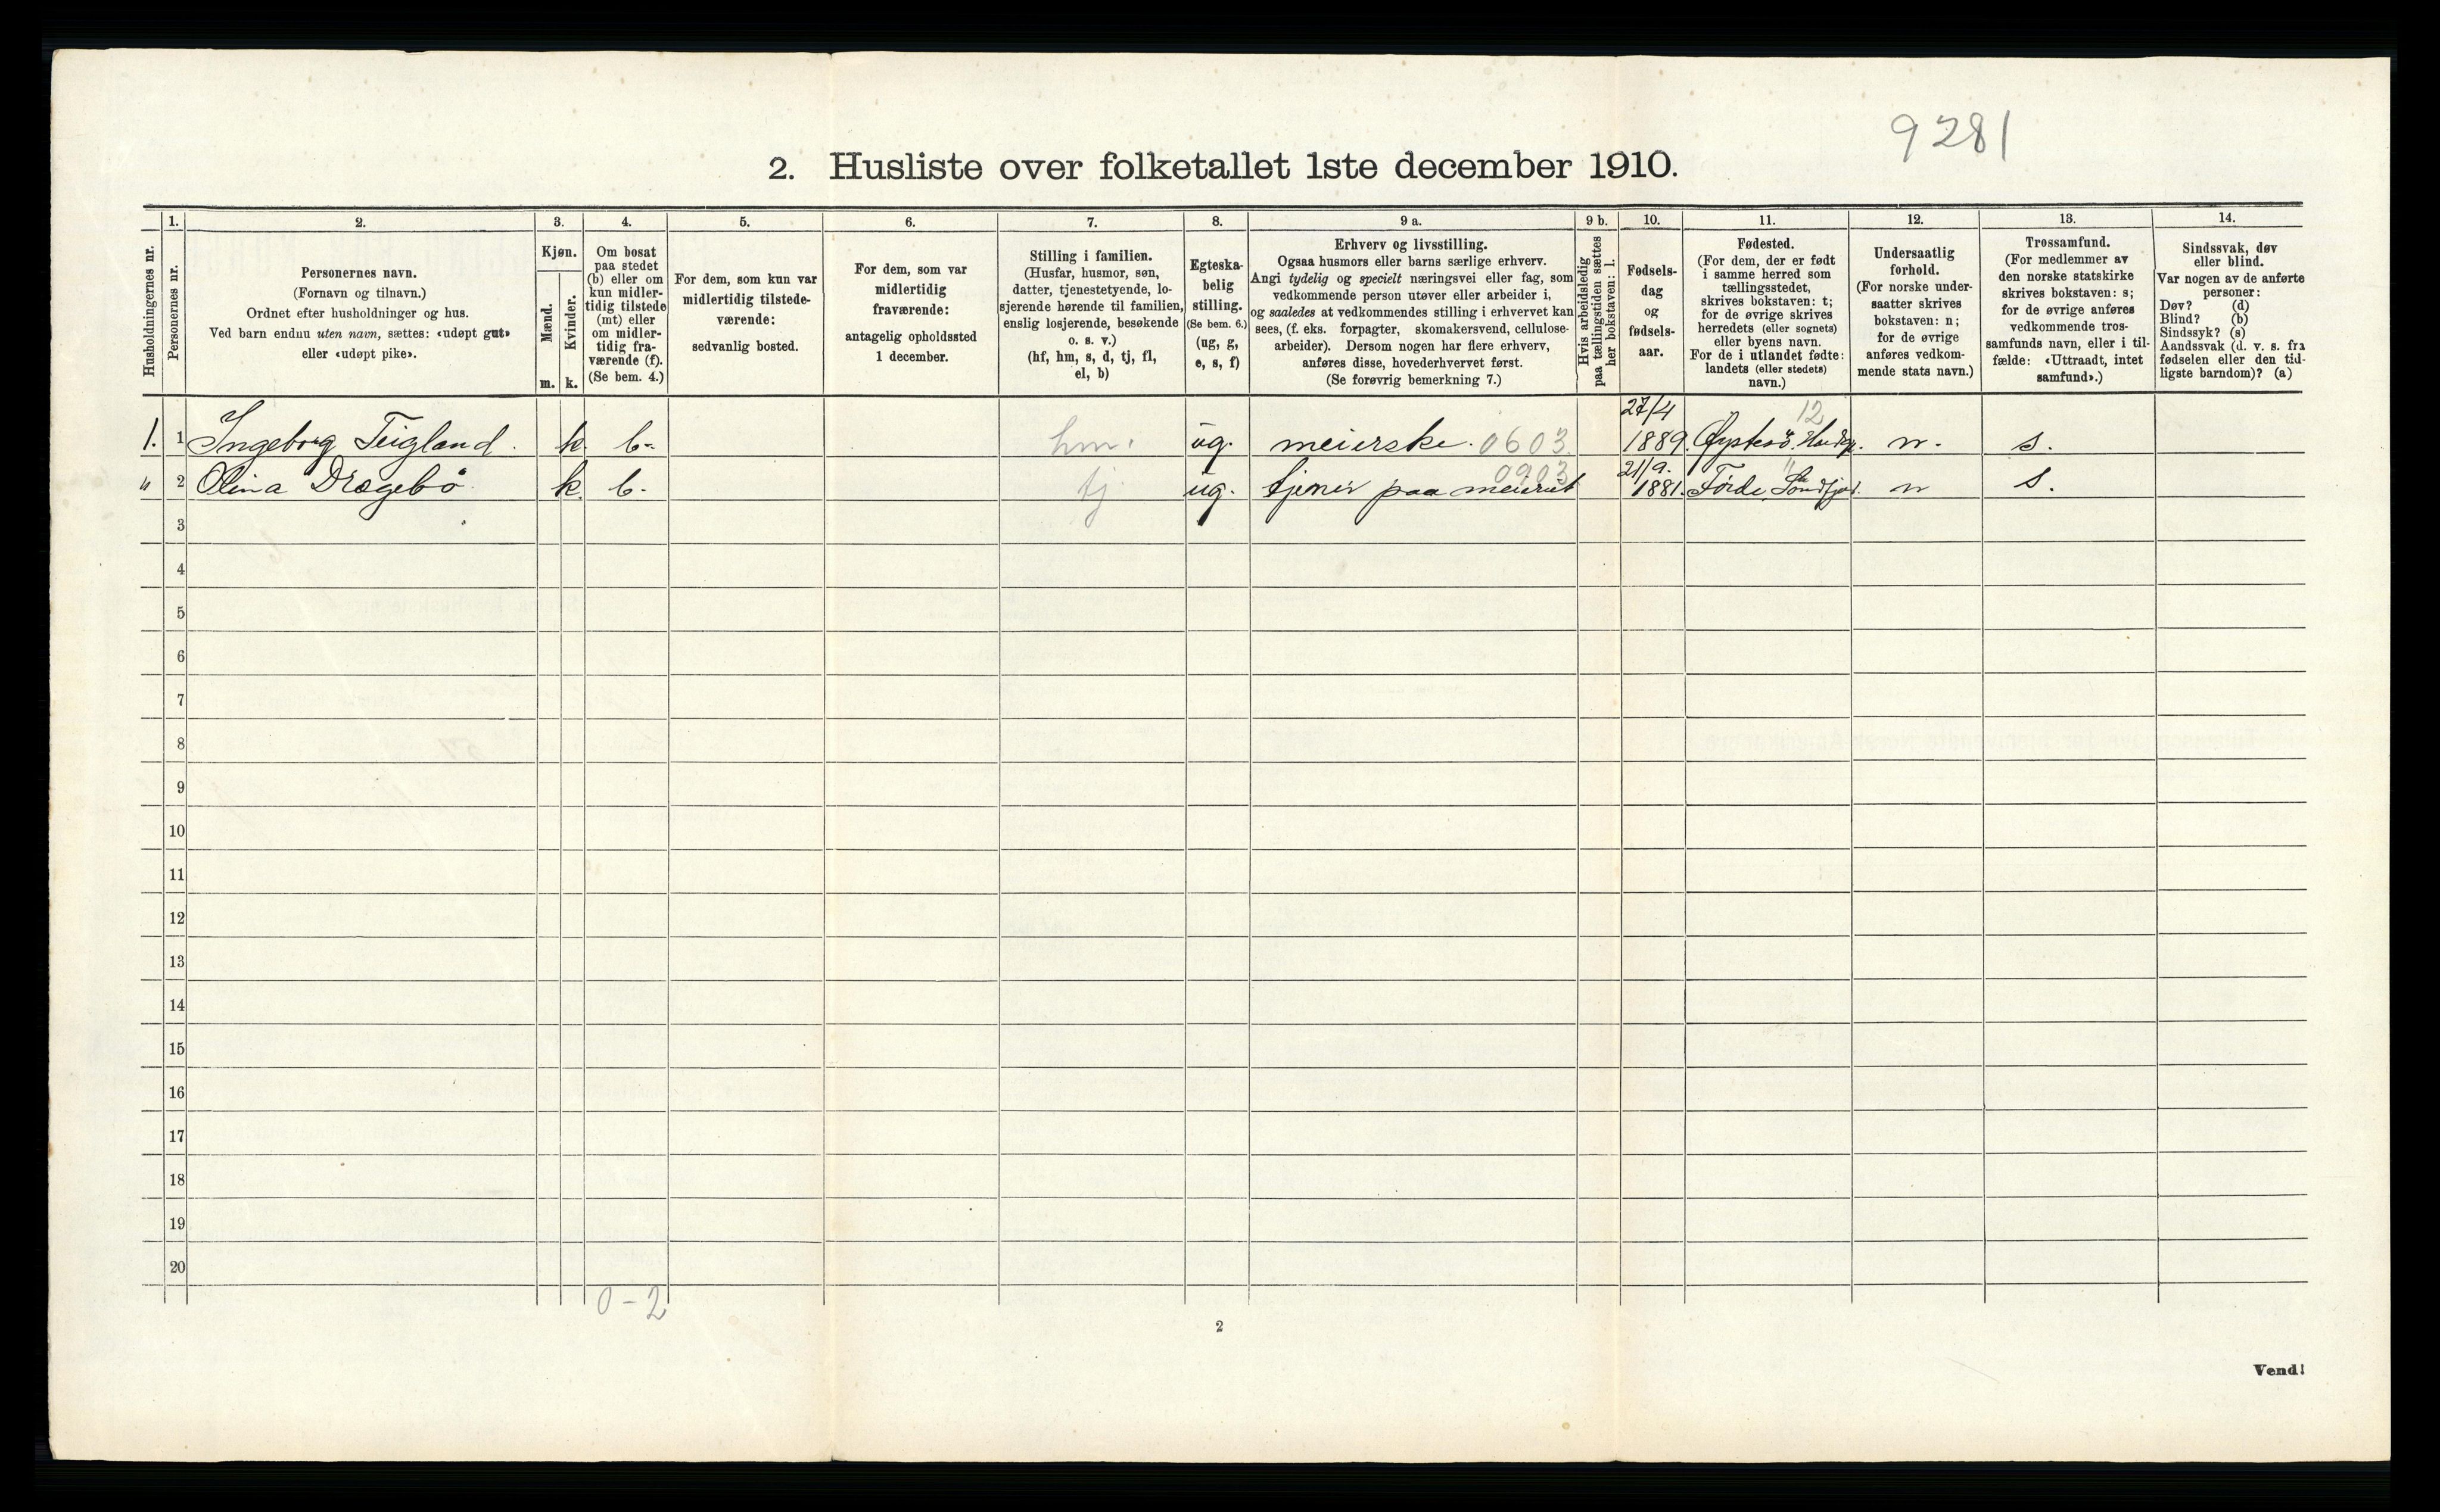 9281
2. Husliste over folketallet 1ste december 1910.
Husholdningernes nr.
1.
Personernes nr.
2.
Personernes navn.
(Fornavn og tilnavn.)
Ordnet efter husholdninger og hus.
Ved barn endnu uten navn, sættes: «udøpt gut»
eller «udøpt pike».
3.
Kjøn.
Mænd.
m.
Kvinder.
k.
4.
Om bosat
paa stedet
(b) eller om
kun midler-
tidig tilstede
(mt) eller
om midler-
tidig fra-
værende (f).
(Se bem. 4.)
5.
For dem, som kun var
midlertidig tilstede-
værende:
sedvanlig bosted.
6.
For dem, som var
midlertidig
fraværende:
antagelig opholdssted
1 december.
7.
Stilling i familien.
(Husfar, husmor, søn,
datter, tjenestetyende, lo-
sjerende hørende til familien,
enslig losjerende, besøkende
o. s. v.)
(hf, hm, s, d, tj, fl,
el, b)
8.
Egteska-
belig
stilling.
(Se bem. 6.)
(ug, g,
e, s, f)
9 a.
Erhverv og livsstilling.
Ogsaa husmors eller barns særlige erhverv.
Angi tydelig og specielt næringsvei eller fag, som
vedkommende person utøver eller arbeider i,
og saaledes at vedkommendes stilling i erhvervet kan
sees, (f. eks. forpagter, skomakersvend, cellulose-
arbeider). Dersom nogen har flere erhverv,
anføres disse, hovederhvervet først.
(Se forøvrig bemerkning 7.)
9 b.
Hvis arbeidsledig
paa tællingstiden sættes
her bokstaven: l.
10.
Fødsels-
dag
og
fødsels-
aar.
11.
Fødested.
(For dem, der er født
i samme herred som
tællingsstedet,
skrives bokstaven: t;
for de øvrige skrives
herredets (eller sognets)
eller byens navn.
For de i utlandet fødte:
landets (eller stedets)
navn.)
12.
Undersaatlig
forhold.
(For norske under-
saatter skrives
bokstaven: n;
for de øvrige
anføres vedkom-
mende stats navn.)
13.
Trossamfund.
(For medlemmer av
den norske statskirke
skrives bokstaven: s;
for de øvrige anføres
vedkommende tros-
samfunds navn, eller i til-
fælde: «Uttraadt, intet
samfund».)
14.
Sindssvak, døv
eller blind.
Var nogen av de anførte
personer:
Døv? (d)
Blind? (b)
Sindssyk? (s)
Aandssvak (d. v. s. fra
fødselen eller den tid-
ligste barndom)? (a)
1. 1 Ingeborg Teigland. k. b- hm. ug. meierske. 0603 27/4 1889. Øystesö. 12 n. s.
" 2 Olina Drægebö k. b- tj ug. tjener paa meieriet 0903 21/9. 1881. Förde, Söndfjord. 11 n s.
3
4
5
6
7
8
9
10
11
12
13
14
15
16
17
18
19
20
0-2
2
Vend!